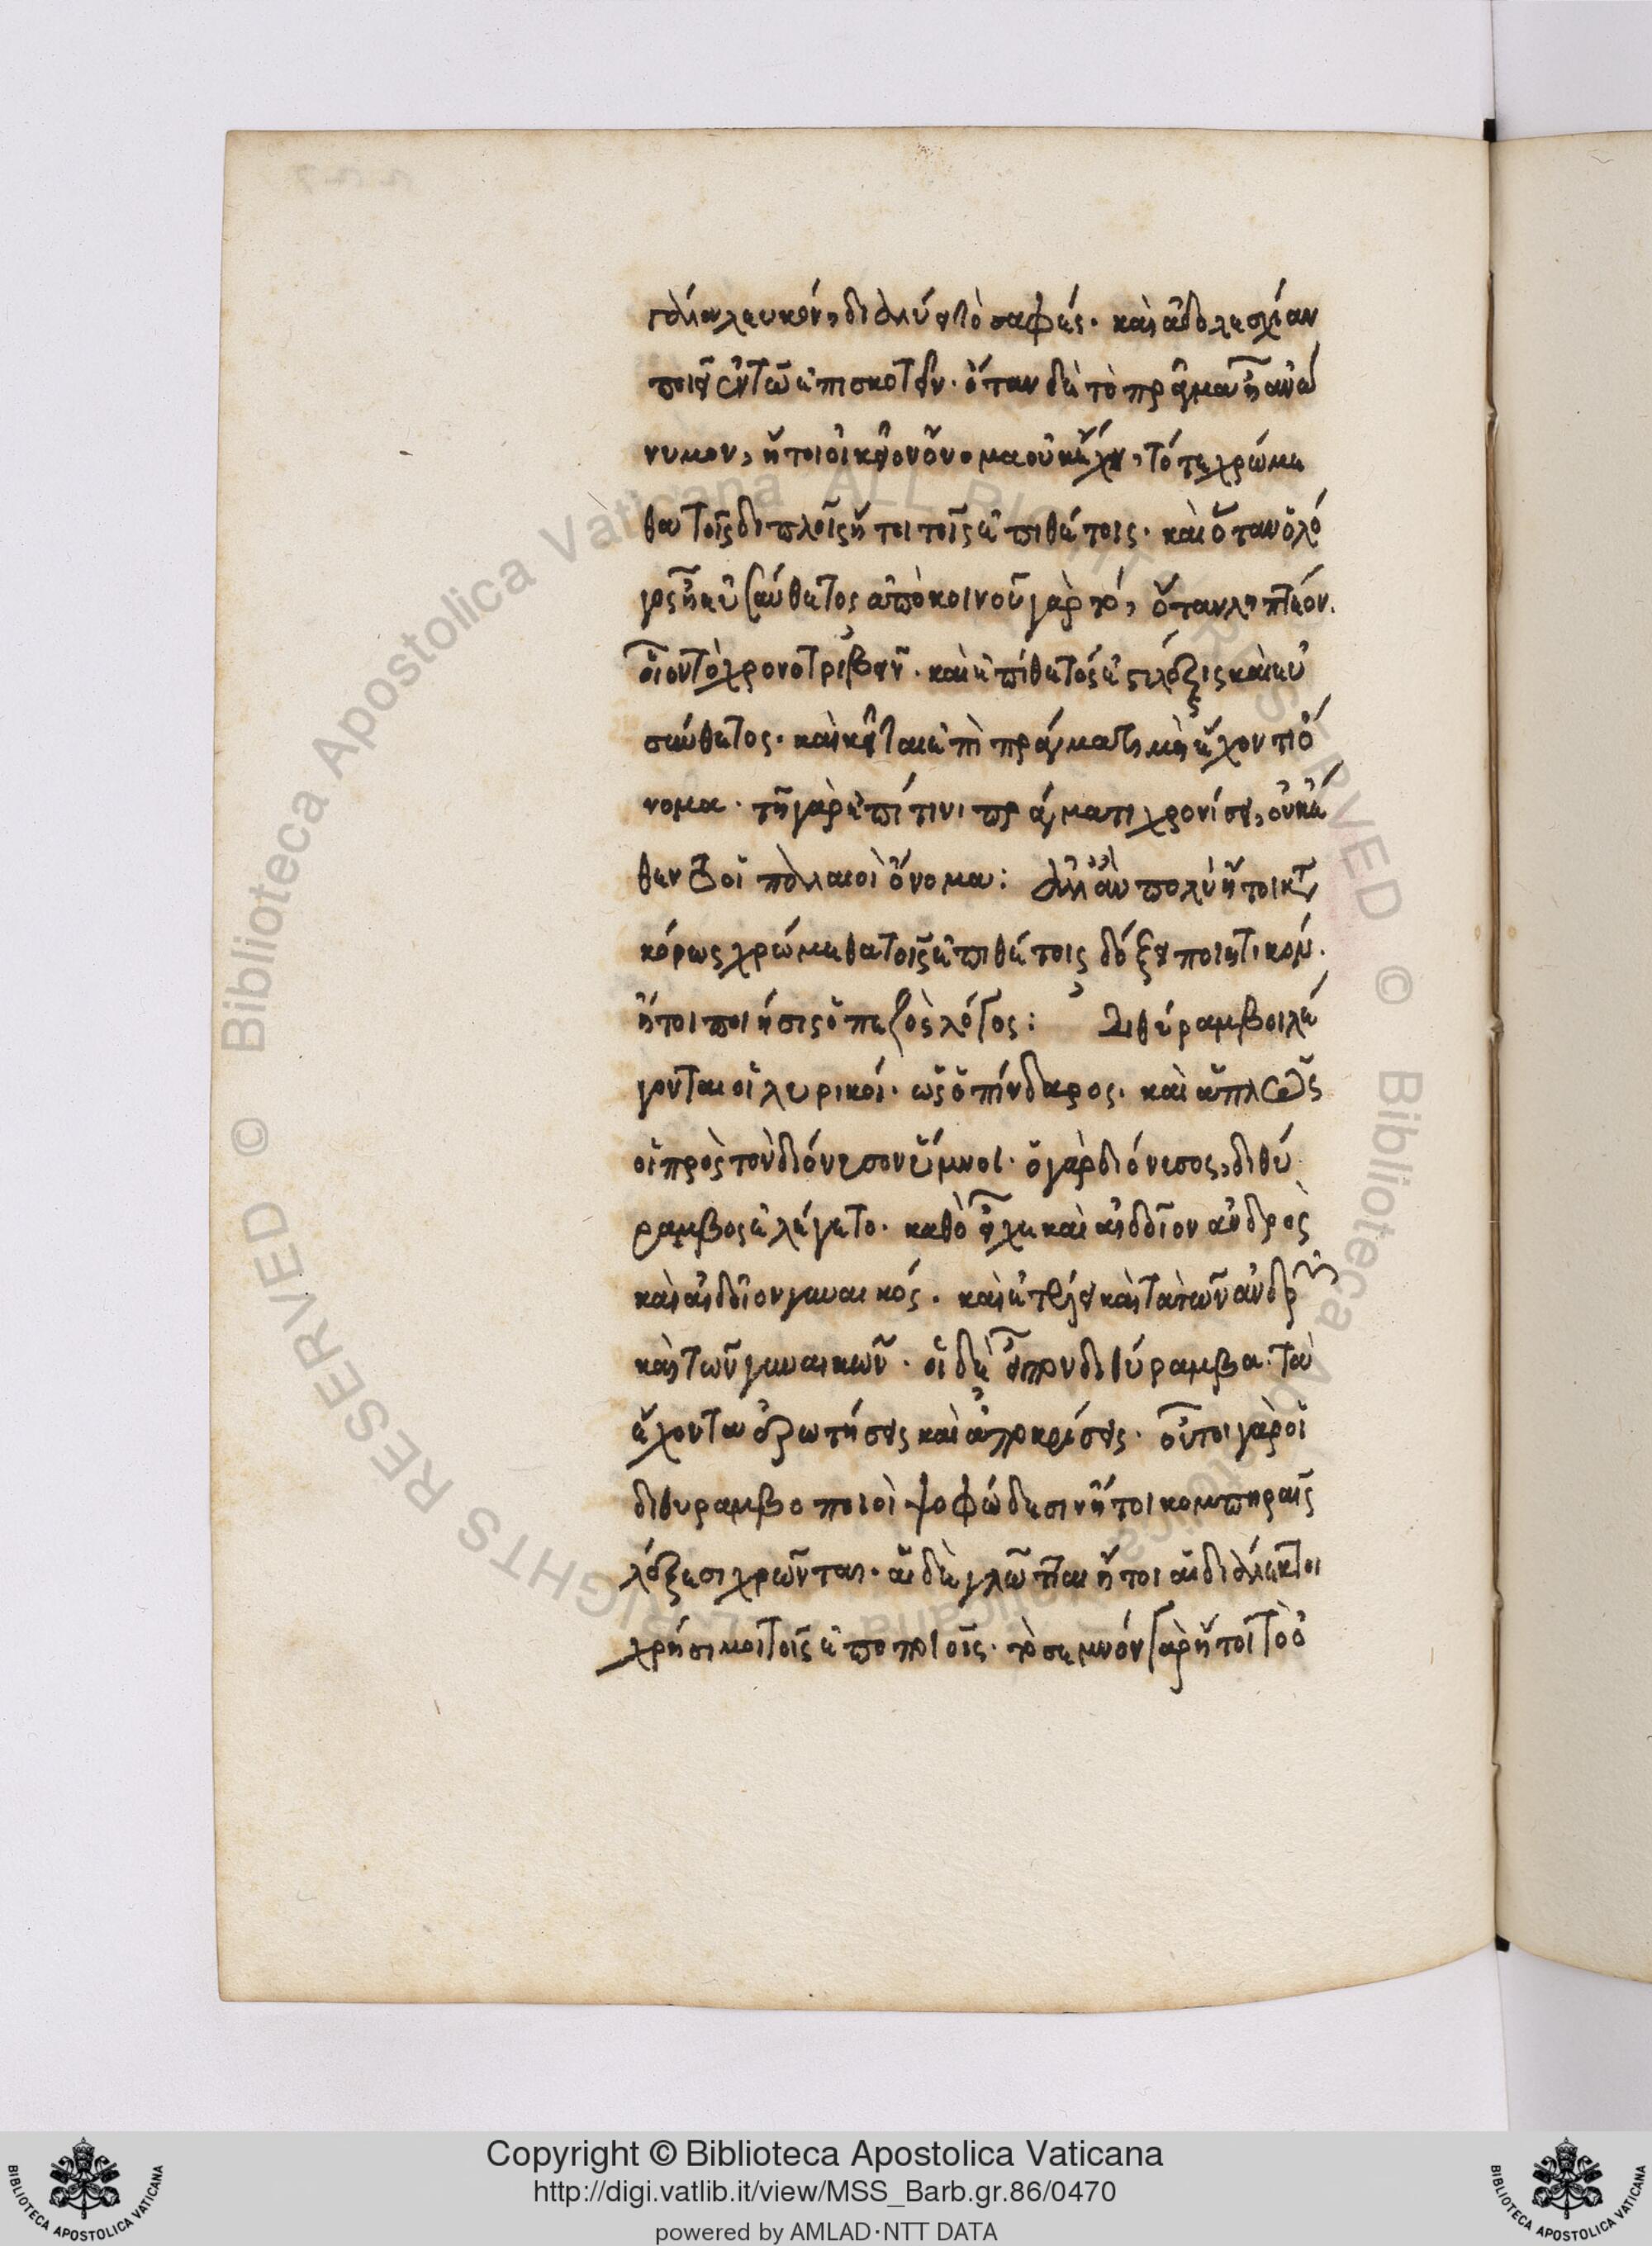 γάλα λευκόν, διαλύει τὸ σαφές. καὶ ἀδολεσχίαν
ποιεῖ ἐν τῶ ἐπισκοτεῖν. ὅταν δὲ τὸ πρᾶγμα ἦ ἀνώ
νυμον, ἤτοι οἰκεῖον ὄνομα οὐκ ἔχει, τότε χρώμε
θα τοῖς διπλοῖς ἤτοι τοῖς ἐπιθέτοις. καὶ ὅταν ὁ λό
γος ἦ εὐσύνθετος ἀπὸ κοινοῦ γὰρ τό, ὅταν ληπτέον.
οἷον τὸ χρονοτριβεῖν. καὶ ἐπίθετός ἐστι λέξις καὶ εὐ
σύνθετος. καὶ κεῖται ἐπὶ πράγματι μὴ ἔχοντι ὄ
νομα. τῆ γὰρ ἐπί τινι πράγματι χρονίσει, οὐκ ἔ
θεντο οἱ παλαιοὶ ὄνομα: ἀλλ' ἂν πολὺ ἤτοι κατα
κόρως χρώμεθα τοῖς ἐπιθέτοις δόξει ποιητικόν.
ἤτοι ποιήσις ὁ πεζὸς λόγος: Διθύραμβοι λέ
γονται οἱ λυρικοί. ὡς ὁ πίνδαρος. καὶ ἁπλῶς
οἱ πρὸς τὸν διόνυσον ὕμνοι. ὁ γὰρ διόνυσος, διθύ
ραμβος ἐλέγετο. καθὸ εἶχε καὶ αἰδοῖον ἀνδρὸς
καὶ αἰδοῖον γυναικός. καὶ ἐτέλει καὶ τὰ τῶν ἀνδρῶν
καὶ τῶν γυναικῶν. οἱ δὲ εἶπον διθύραμβα. τὰ
ἔχοντα ἐρωτήσεις καὶ ἀποκρίσεις. οὗτοι γὰρ οἱ
διθυραμβοποιοὶ ψοφώδεσιν ἤτοι κομπηραῖς
λέξεσι χρῶνται. αἱ δὲ γλῶτται ἤτοι αἱ διάλεκτοι
χρήσιμοι τοῖς ἐποποιοῖς. τὸ σεμνὸν γὰρ ἤτοι τὸ ὀ
Copyright © Biblioteca Apostolica Vaticana
http://digi.vatlib.it/view/MSS_Barb.gr.86/0470
powered by AMLAD·NTT DATA